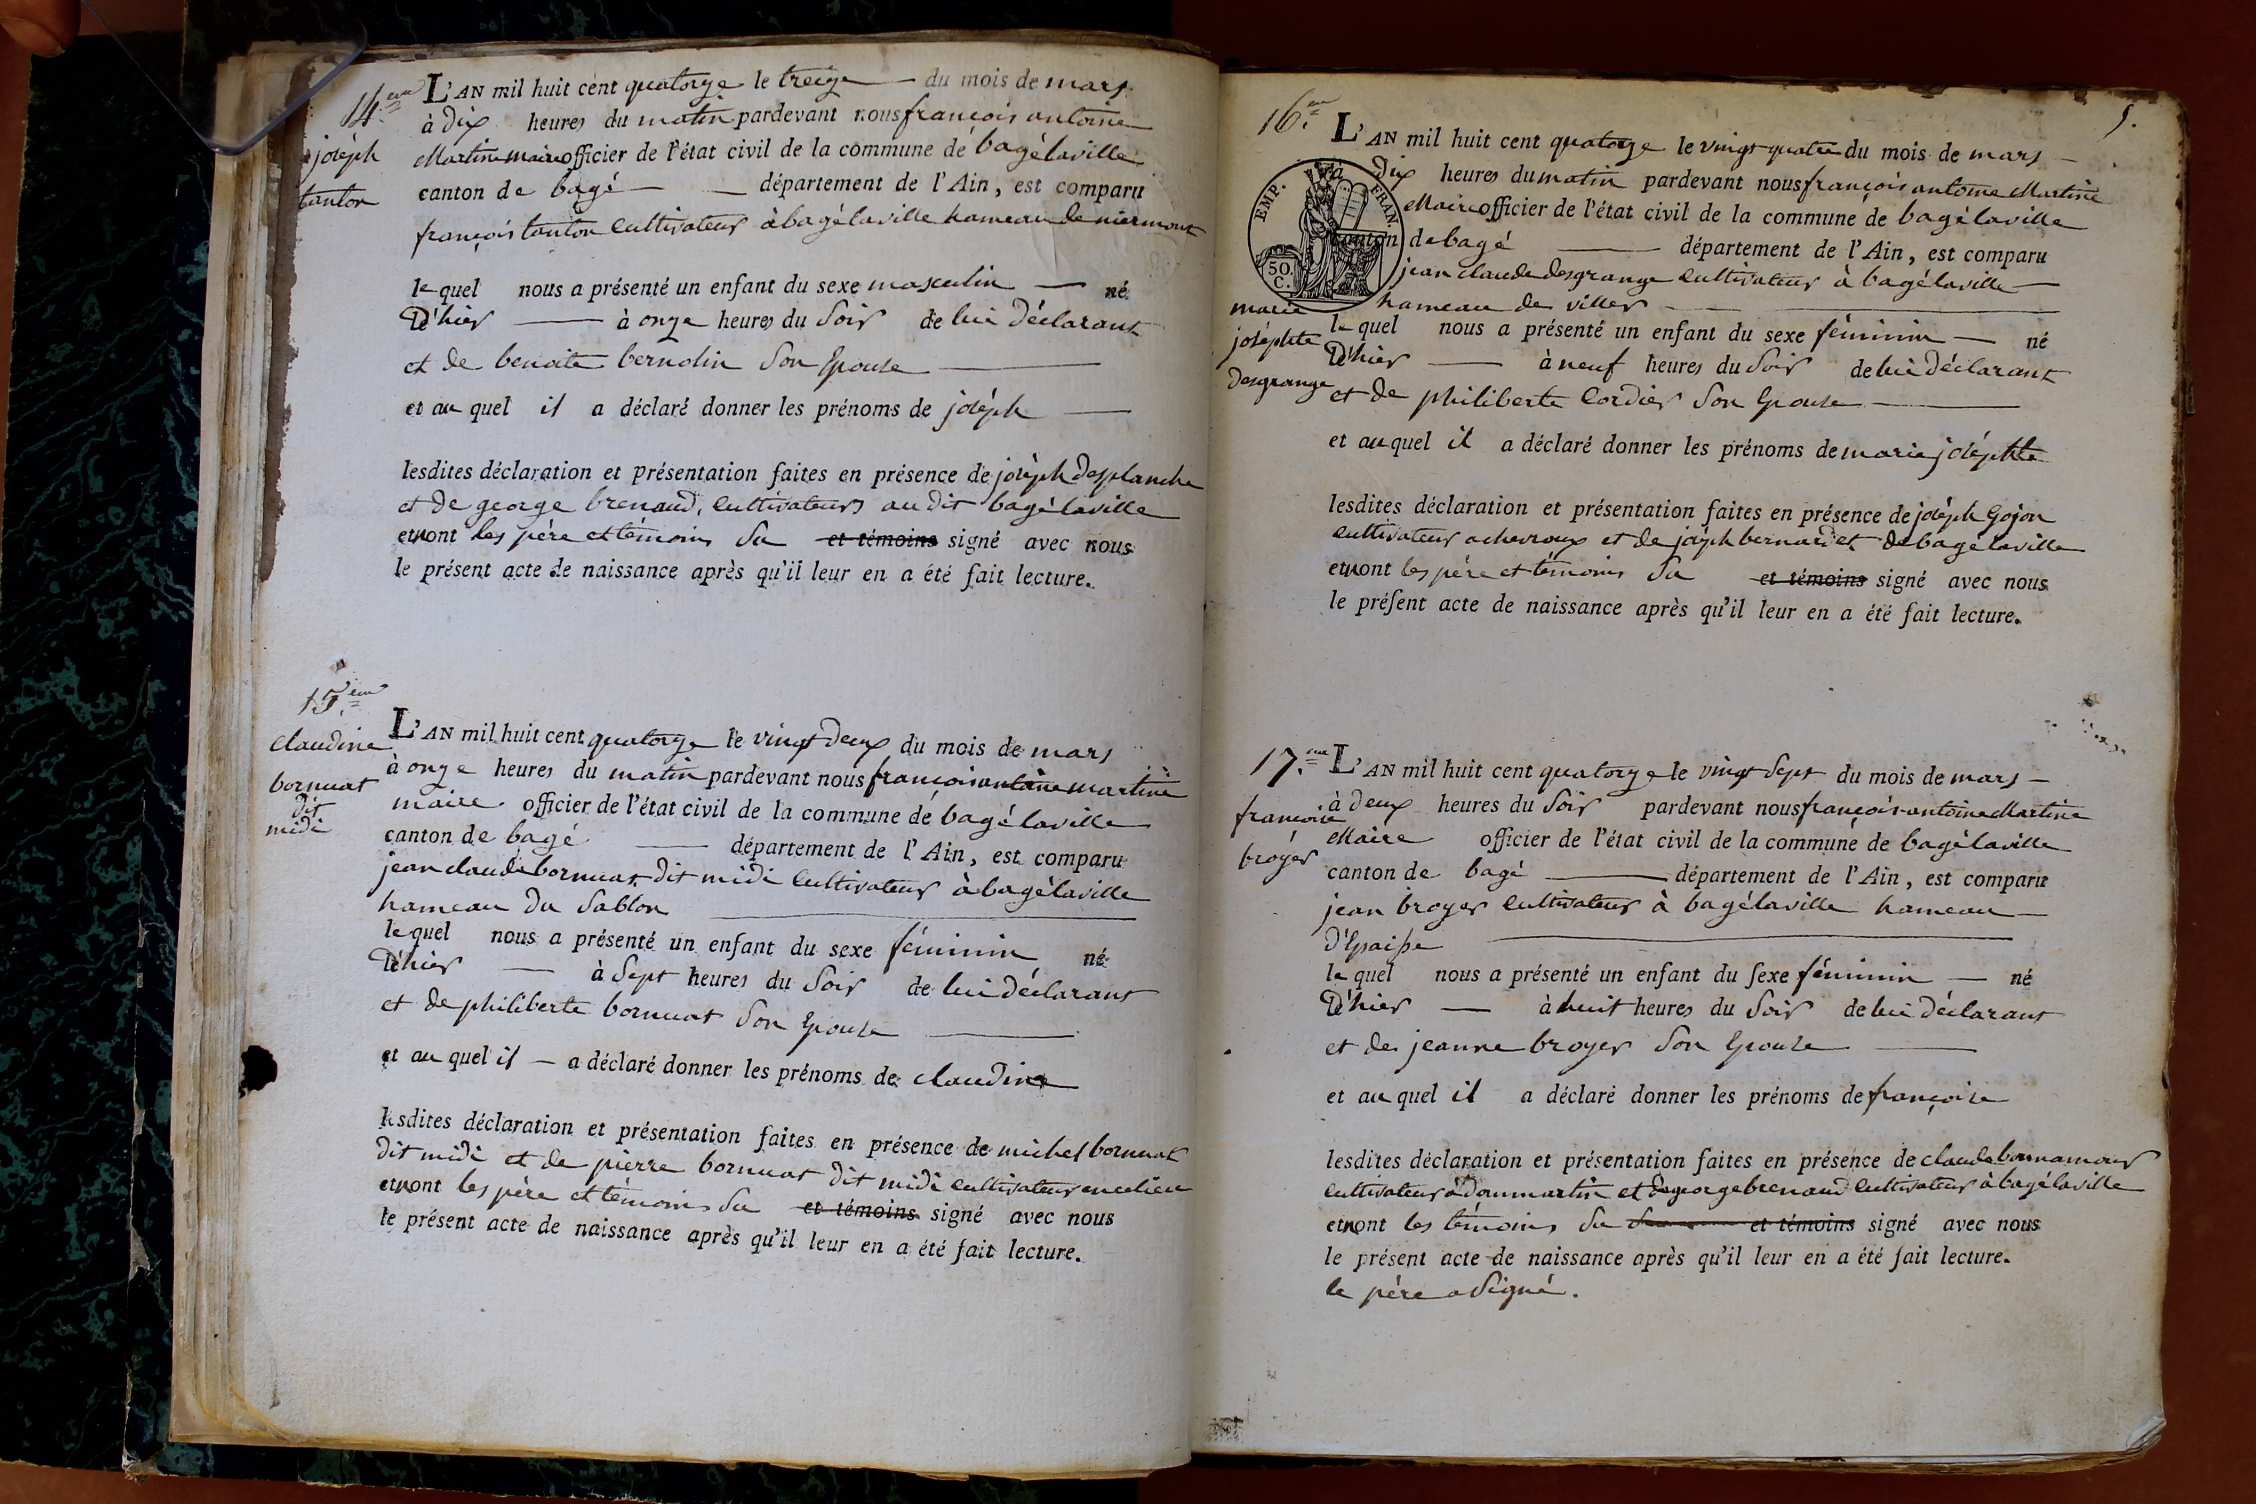 14.eme
joséph
tanton
L'AN mil huit cent quatorze le treize du mois de mars
à dix heures du matin pardevant nous françois antoine
Martine maire officier de l'état civil de la commune de bagélaville
canton de bagé département de l'Ain, est comparu
françois tanton cultivateur à bagélaville hameau de niermont
le quel nous a présenté un enfant du sexe masculin né
d'hier à onze heures du soir de lui déclarant
et de benoite bernolin son épouse
et au quel il a déclaré donner les prénoms de joséph
lesdites déclaration et présentation faites en présence de joséph desplanche
et de george brenaud, cultivateurs au dit bagélaville
et n'ont les père et témoins su et témoins signé avec nous
le présent acte de naissance après qu'il leur en a été fait lecture.
15.eme
claudine
bornuat
dit
midi
L'AN mil huit cent quatorze le vingt deux du mois de mars
à onze heures du matin pardevant nous françois antoine martine
maire officier de l'état civil de la commune de bagélaville
canton de bagé département de l'Ain, est comparu
jean claude bornuat dit midi cultivateur à bagélaville
hameau du sablon
le quel nous a présenté un enfant du sexe féminin né
d'hier à sept heures du soir de lui déclarant
et de philiberte bornuat son épouse
et au quel il a déclaré donner les prénoms de claudine
lesdites déclaration et présentation faites en présence de michel bornuat
dit midi et de pierre bornuat dit midi cultivateurs en ce lieu
et n'ont les père et témoins su et témoins signé avec nous
le présent acte de naissance après qu'il leur en a été fait lecture.
5.
16.eme
EMP. FRAN.
50.
C.
marie
joséphte
desgrange
L'AN mil huit cent quatorze le vingt quatre du mois de mars
à dix heures du matin pardevant nous françois antoine Martine
Maire officier de l'état civil de la commune de bagélaville
canton de bagé département de l'Ain, est comparu
jean claude desgrange cultivateur à bagélaville
hameau de villes
le quel nous a présenté un enfant du sexe féminin né
d'hier à neuf heures du soir de lui déclarant
et de philiberte Cordier son épouse
et au quel il a déclaré donner les prénoms de marie joséphte
lesdites déclaration et présentation faites en présence de joséph Gojon
cultivateur a chevroux et de joséph bernardet de bagélaville
et n'ont les père et témoins su et témoins signé avec nous
le présent acte de naissance après qu'il leur en a été fait lecture.
17.eme
françoise
broyer
L'AN mil huit cent quatorze le vingt sept du mois de mars
à deux heures du soir pardevant nous françois antoine Martine
Maire officier de l'état civil de la commune de bagélaville
canton de bagé département de l'Ain, est comparu
jean broyer cultivateur à bagélaville hameau
d'épaisse
le quel nous a présenté un enfant du sexe féminin né
d'hier à huit heures du soir de lui déclarant
et de jeanne broyer son épouse
et au quel il a déclaré donner les prénoms de françoise
lesdites déclaration et présentation faites en présence de claude bonnamour
cultivateur à dommartin et de george brenaud cultivateur à bagélaville
et n'ont les témoins su et témoins signé avec nous
le présent acte de naissance après qu'il leur en a été fait lecture.
le père a signé.